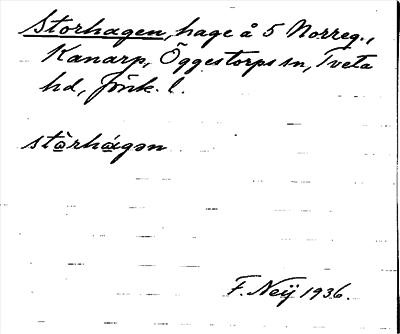 Storhagen, hage å 5 Norreg.,
Kanarp, Öggestorps sn, Tveta
hd, Jönk. l.
stòrhágən
F. Neij 1936.